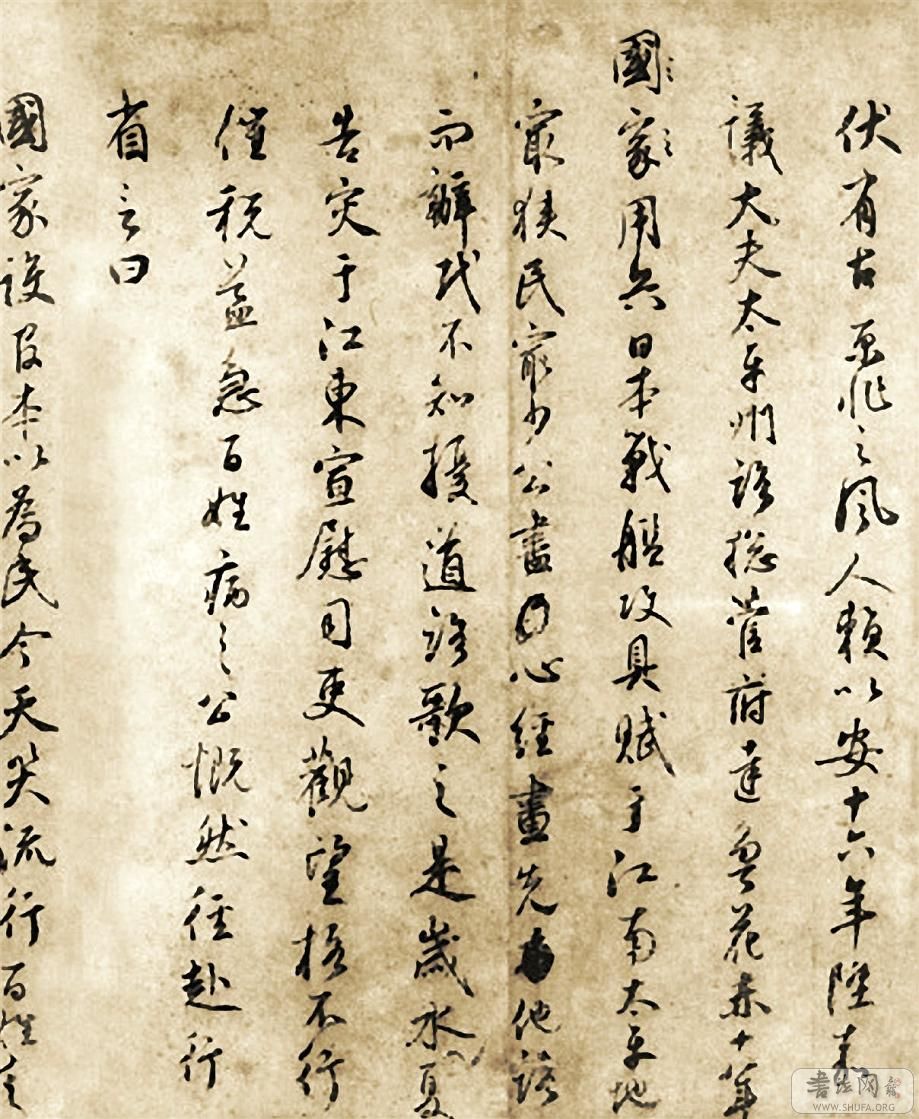 伏有古⿸之風人賴以安十六年陞嘉
議大夫太平州路總管府達魯花赤十八年
國家用兵日本戰艦攻具賦于江南太平地
窄狹民窮少公盡心經畫先他路
而辦民不知擾道路歌之是歲水夏
告灾于江東宣慰司吏觀望格不行
催稅益急百姓病之公慨然徑赴行
省言曰
國家設官本以為民今天災流行百姓之
書法网
WWW.SHUFA.ORG